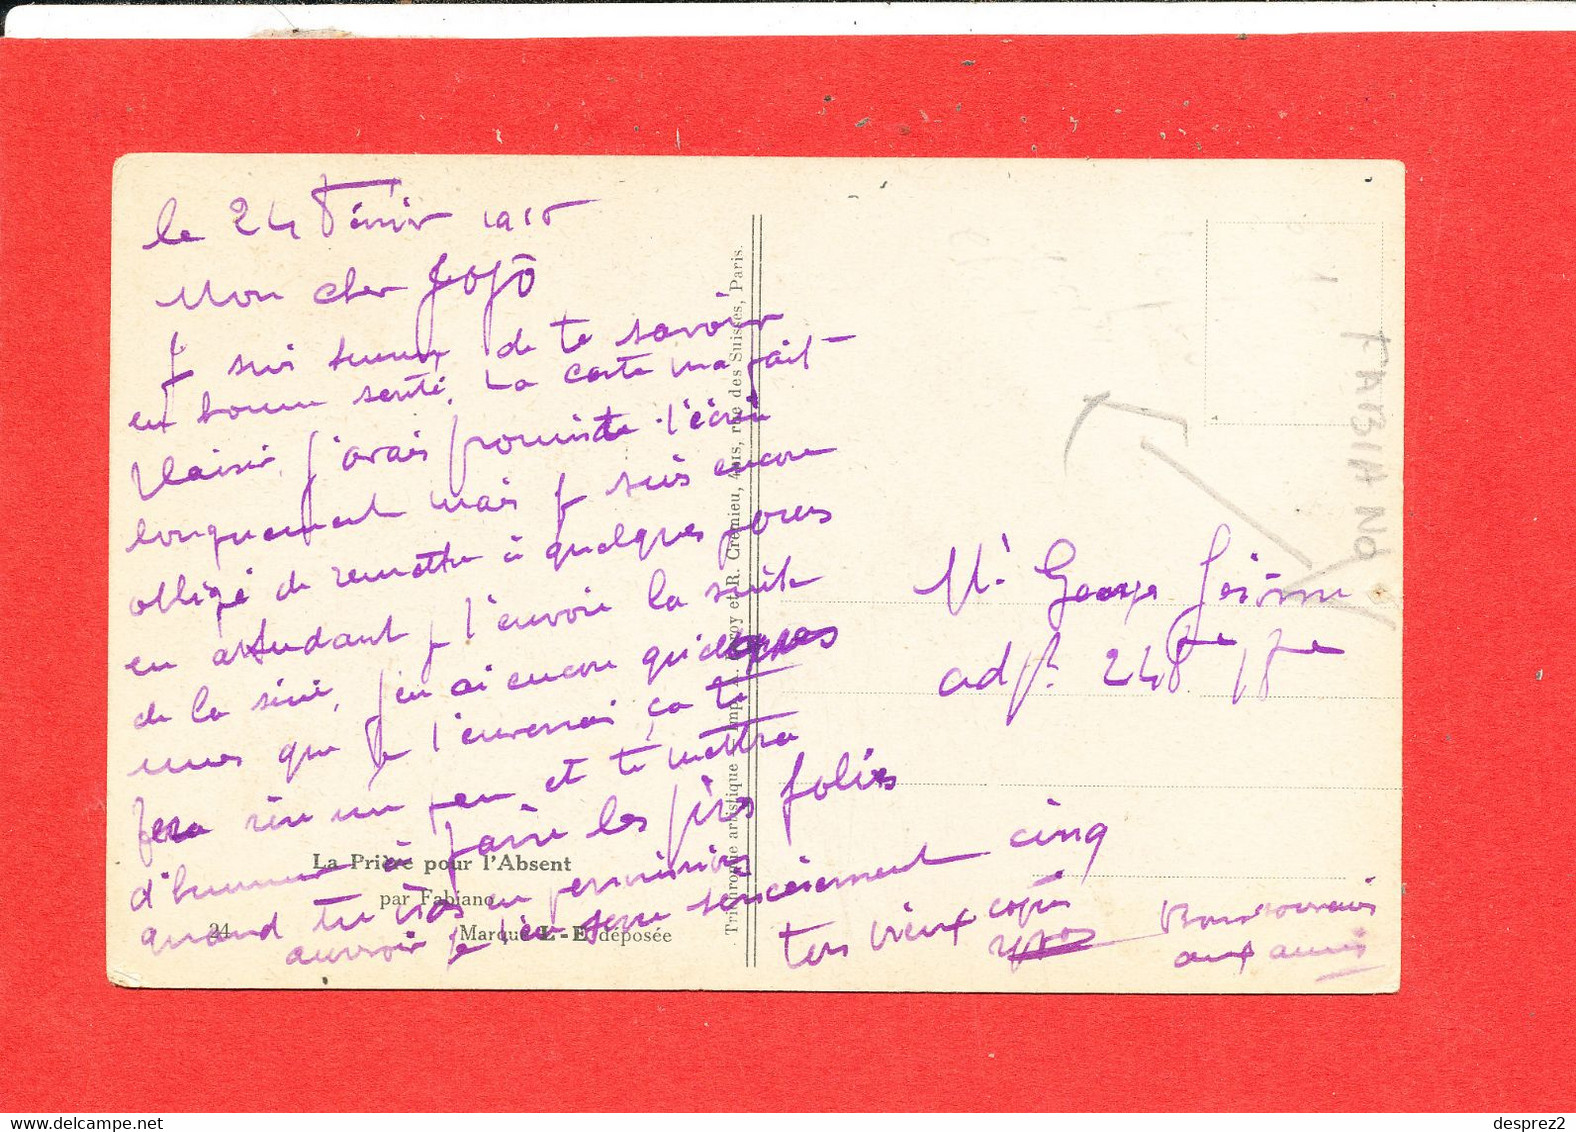 le 24 Février 1915
Mon cher Jojo
Je suis heureux de te savoir
en bonne santé. Ta carte m'a fait
plaisir, j'avais promis de t'écrire
longuement mais je suis encore
obligé de remettre à quelques jours
en attendant je t'envoie la suite
de la série, j'en ai encore quelques
unes que je t'enverrai, ça te
fera rire un peu et te mettra
d'humeur à faire les pires folies
quand tu vas en permission
au revoir je t'en serre sincèrement cinq
ton vieux copain
Bons souvenirs
aux amis
La Prière pour l'Absent
par Fabiano
24
Marque L-E déposée
Trichromie artistique Imp. Leroy et R. Cremieu, 4 bis, rue des Suisses, Paris.
Mr George
adjt. 248ème
FABIANO
www.delcampe.net
desprez2